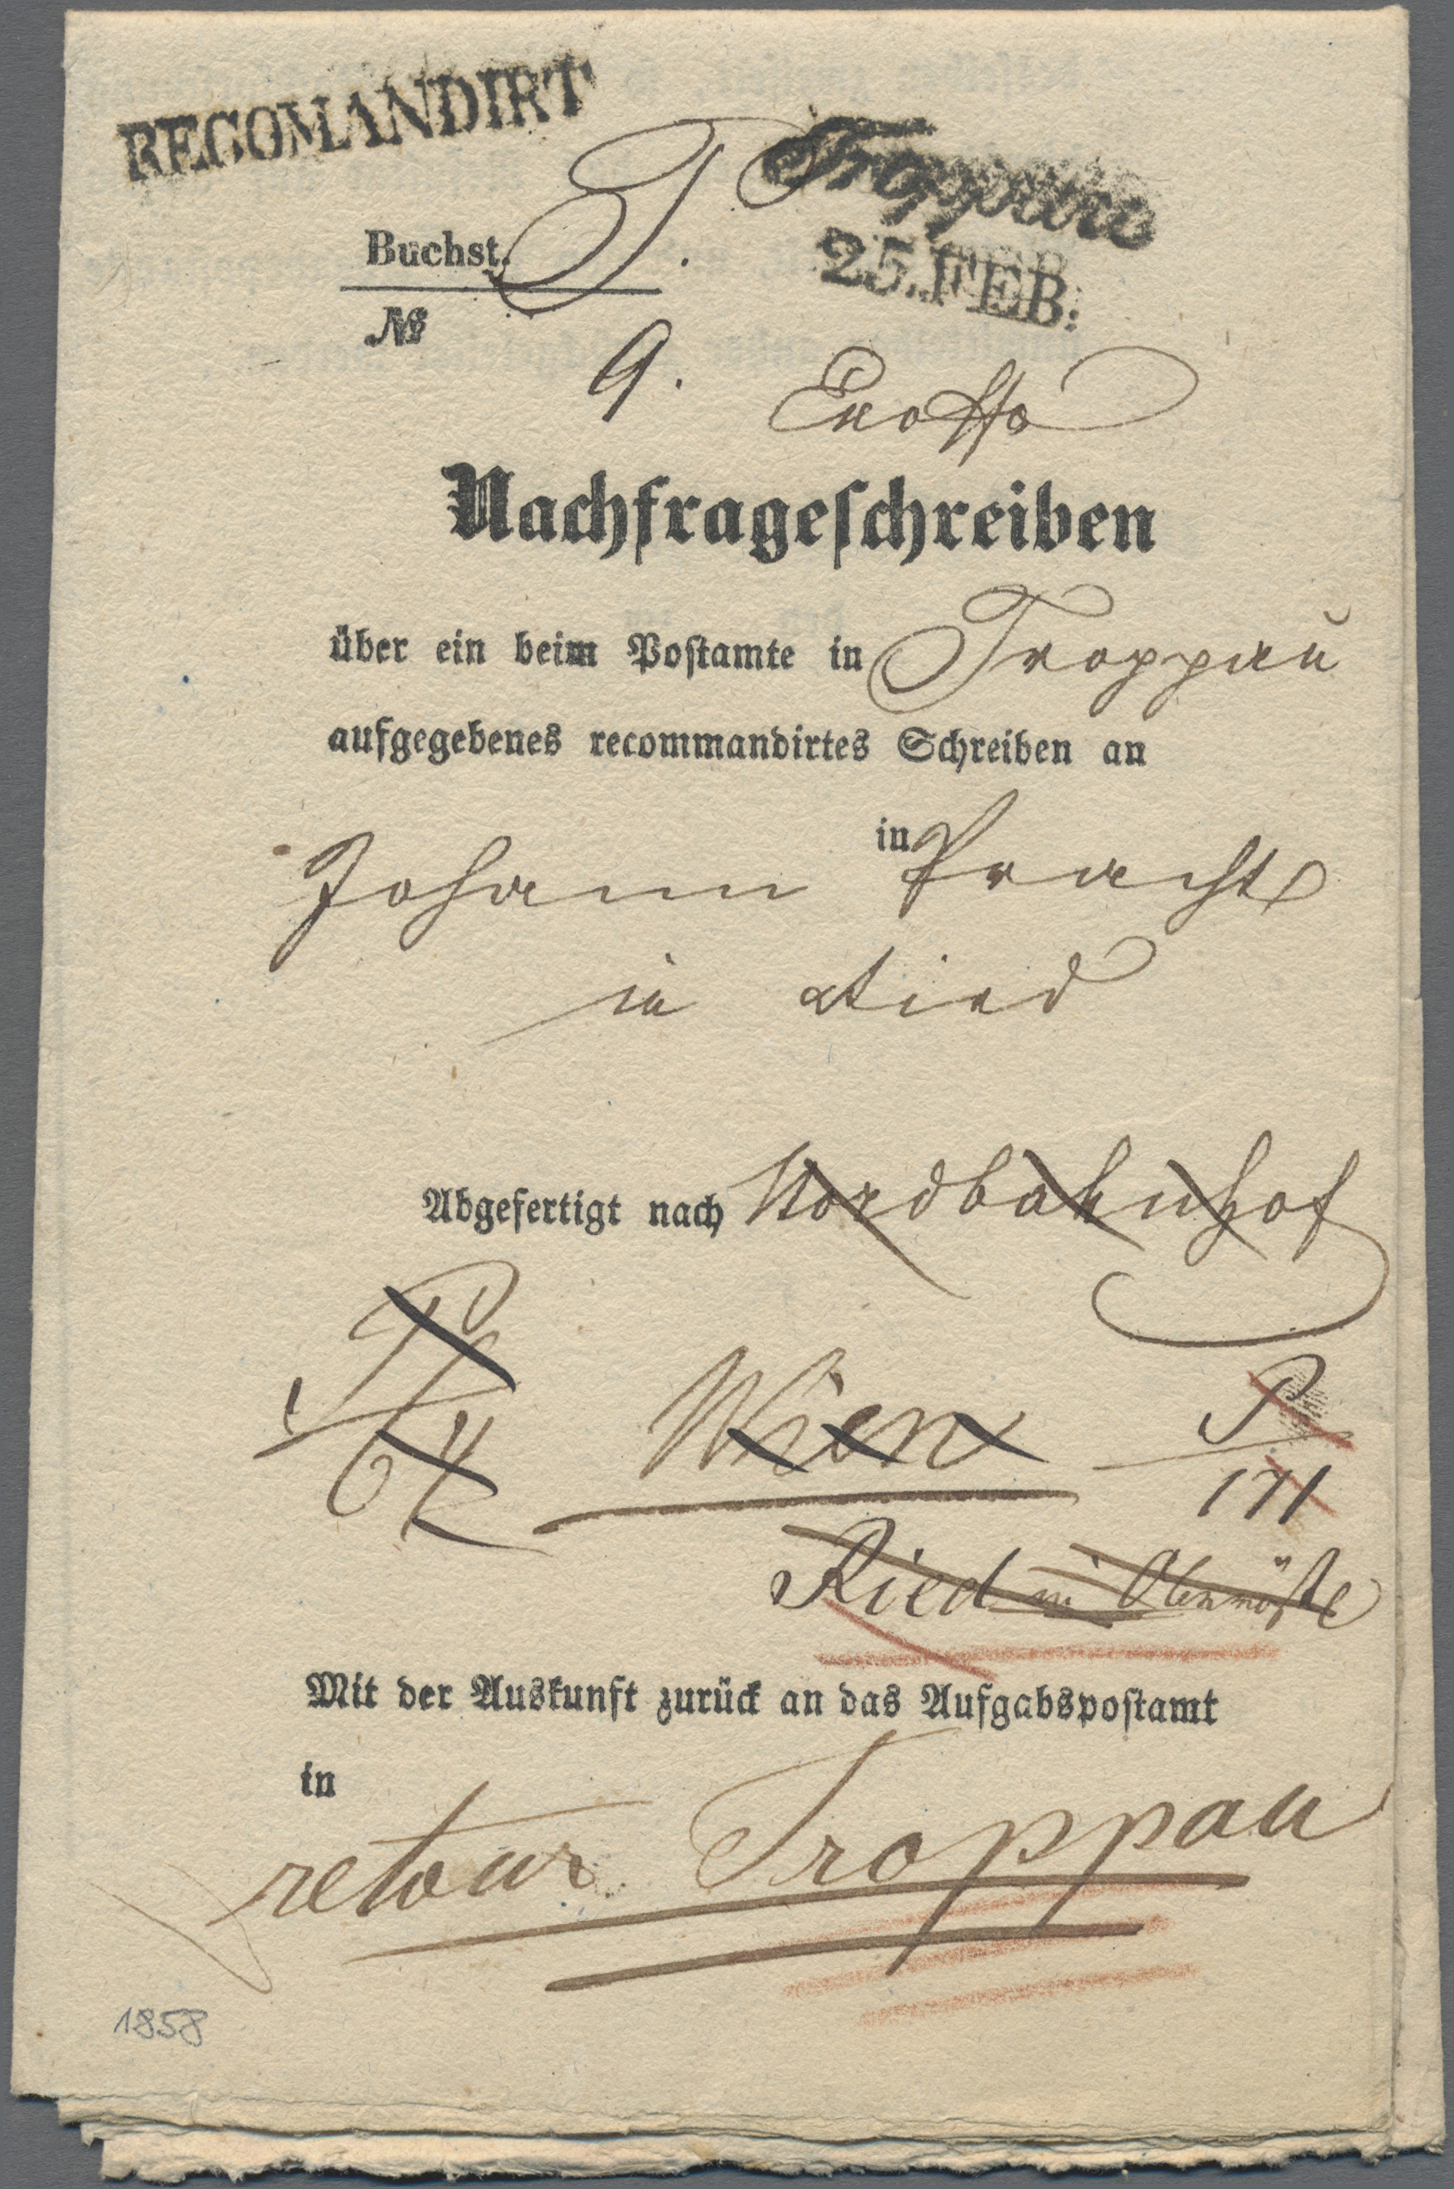 RECOMANDIRT
Troppau
25. FEB:
Buchst. T.
№ 9.
Ex offo
Nachfrageschreiben
über ein beim Postamte in Troppau
aufgegebenes recommandirtes Schreiben an
in
Johann Pracht
in Ried
Abgefertigt nach Nordbahnhof
64
Wien
P
171
Ried
Mit der Auskunft zurück an das Aufgabspostamt
in
retour Troppau
1858